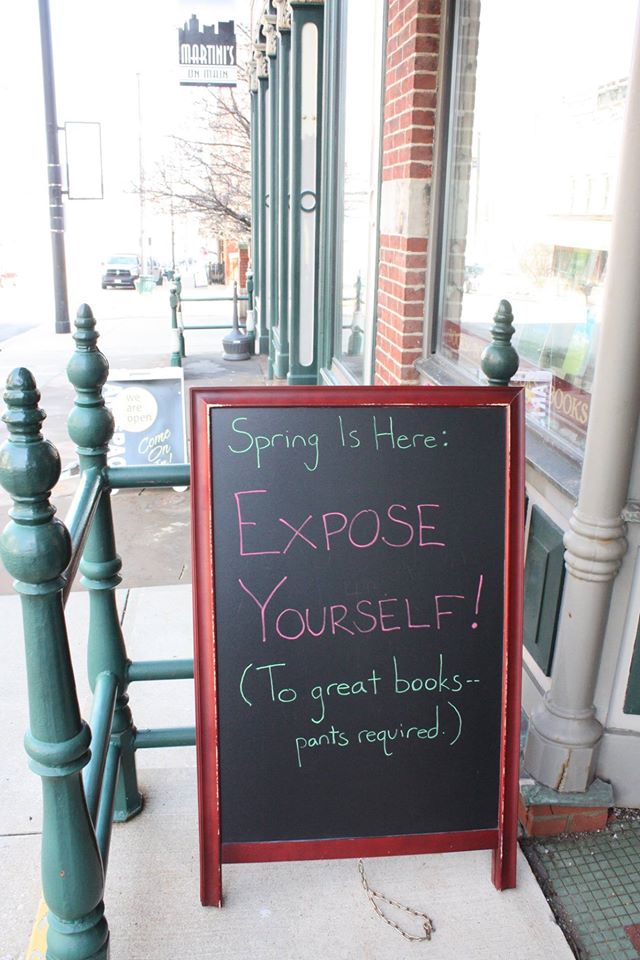 MARTINI'S
ON MAIN
we
are
open
Come
On
In!
BOOKS
Spring Is Here:
EXPOSE
YOURSELF!
(To great books--
pants required.)